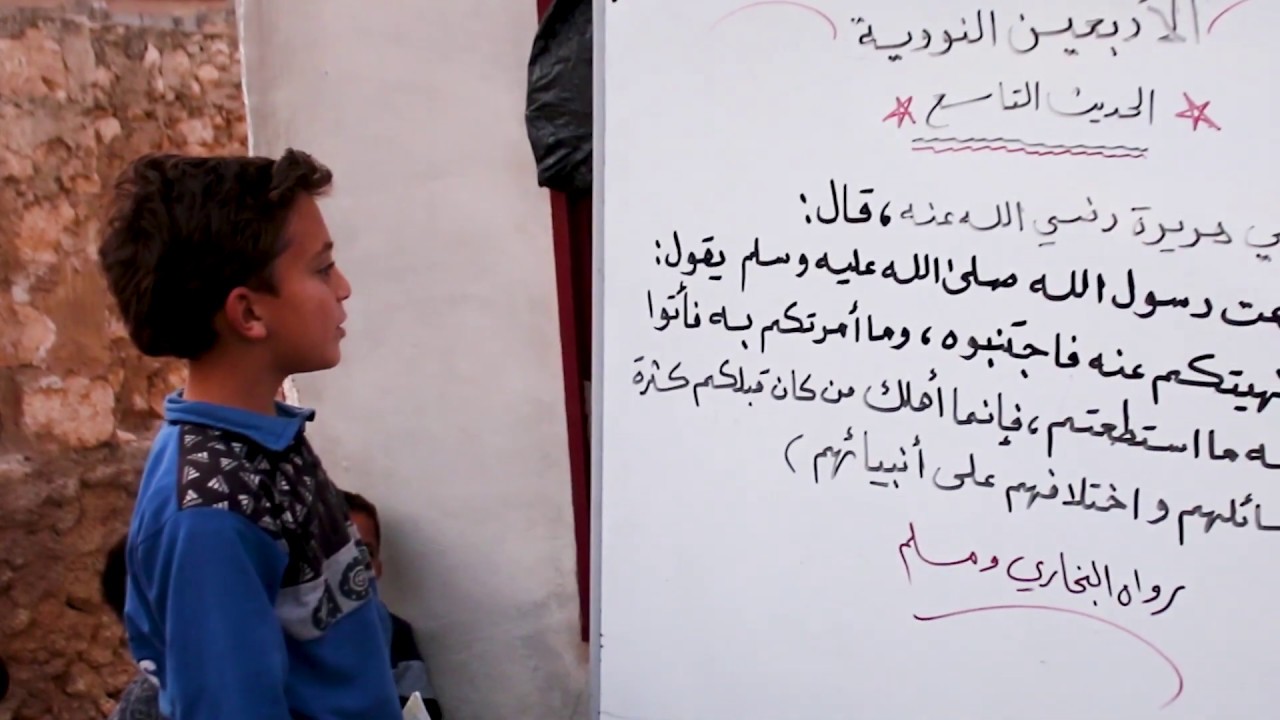 الأربعين النووية
الحديث التاسع
هريرة رضي الله عنه، قال:
رسول الله صلى الله عليه وسلم يقول:
عنه فاجتنبوه، وما أمرتكم به فأتوا
ما استطعتم، فإنما أهلك من كان قبلكم كثرة
واختلافهم على أنبيائهم)
رواه البخاري ومسلم